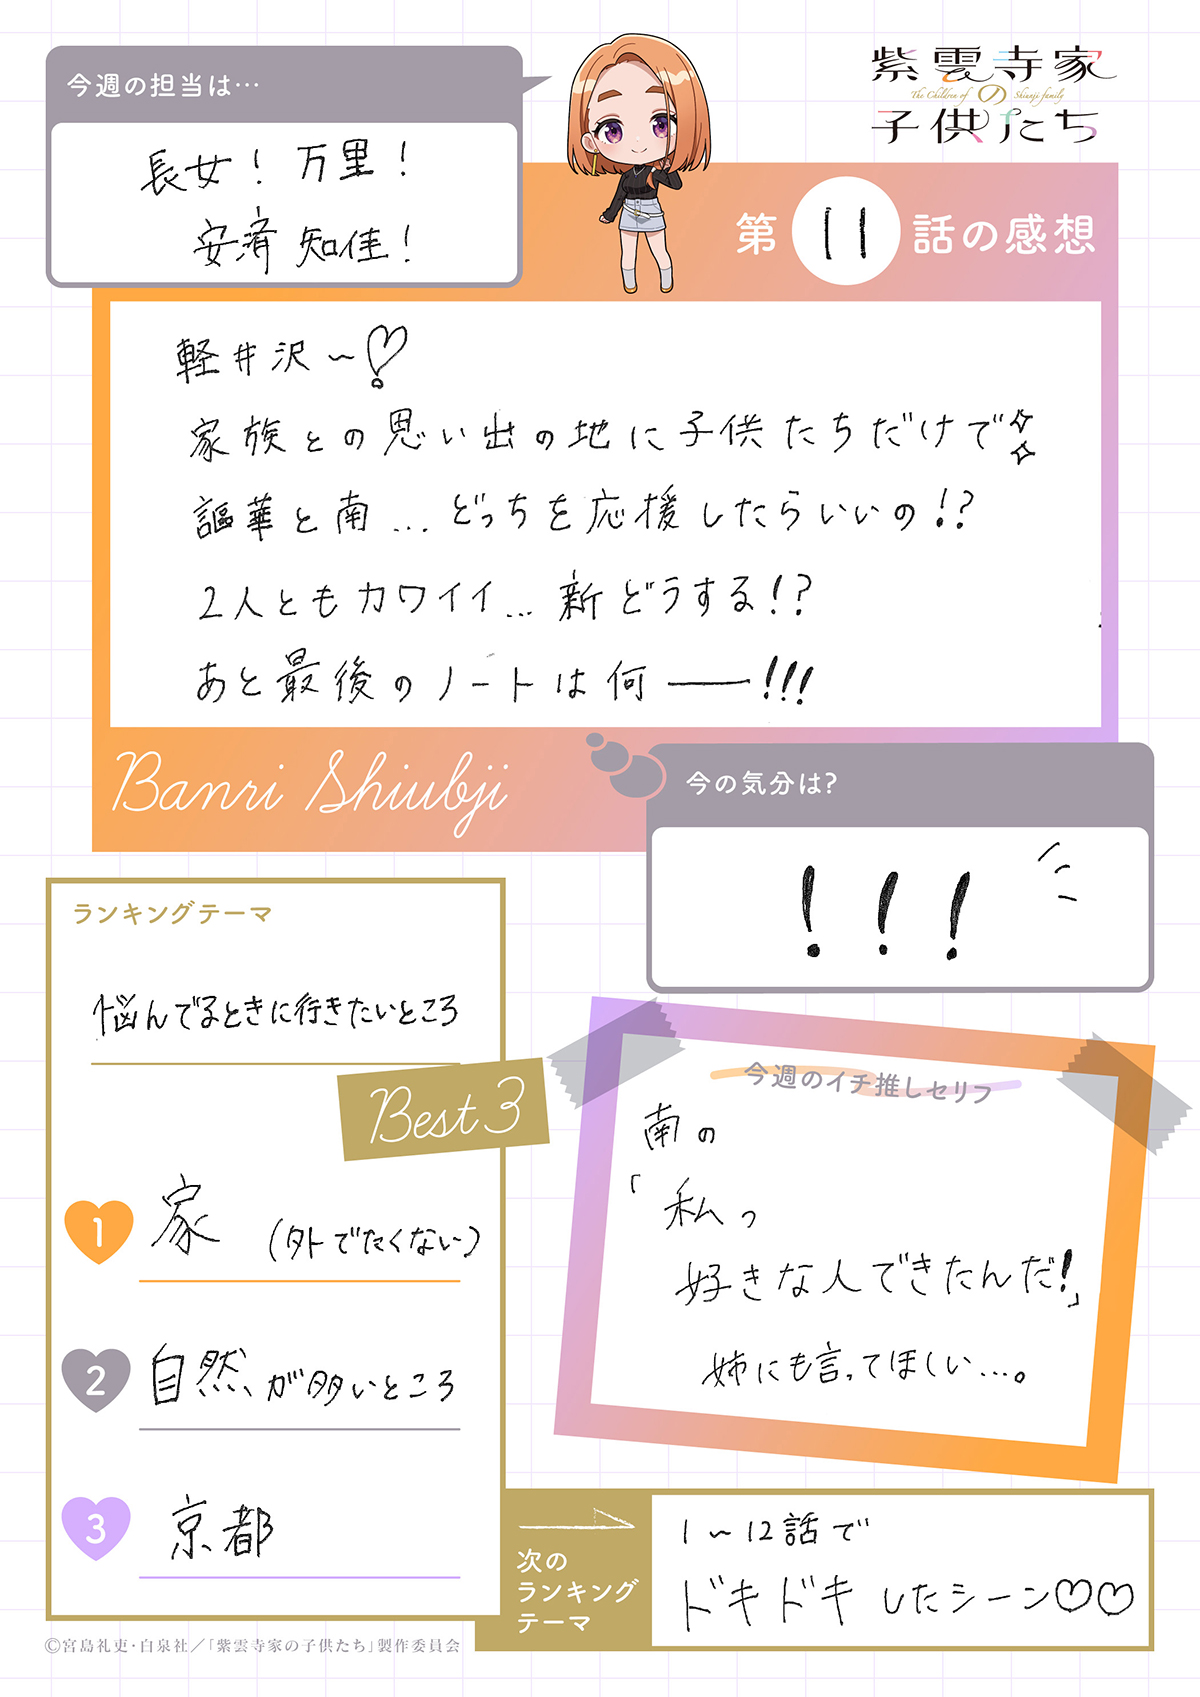 今週の担当は…
長女！ 万里！
安済 知佳！
紫雲寺家
の
The Children of Shiunji family
子供たち
第 11 話の感想
軽井沢～♡
家族との思い出の地に子供たちだけで
謳華と南…どっちを応援したらいいの!?
2人ともカワイイ…新どうする!?
あと最後のノートは何――!!!
Banri Shiubji
今の気分は?
!!!
ランキングテーマ
悩んでるときに行きたいところ
Best 3
1 家 (外でたくない)
2 自然が多いところ
3 京都
今週のイチ推しセリフ
南の
「私っ
好きな人できたんだ!」
姉にも言ってほしい…。
次の
ランキング
テーマ
1～12話で
ドキドキしたシーン♡♡
©宮島礼吏・白泉社／「紫雲寺家の子供たち」製作委員会